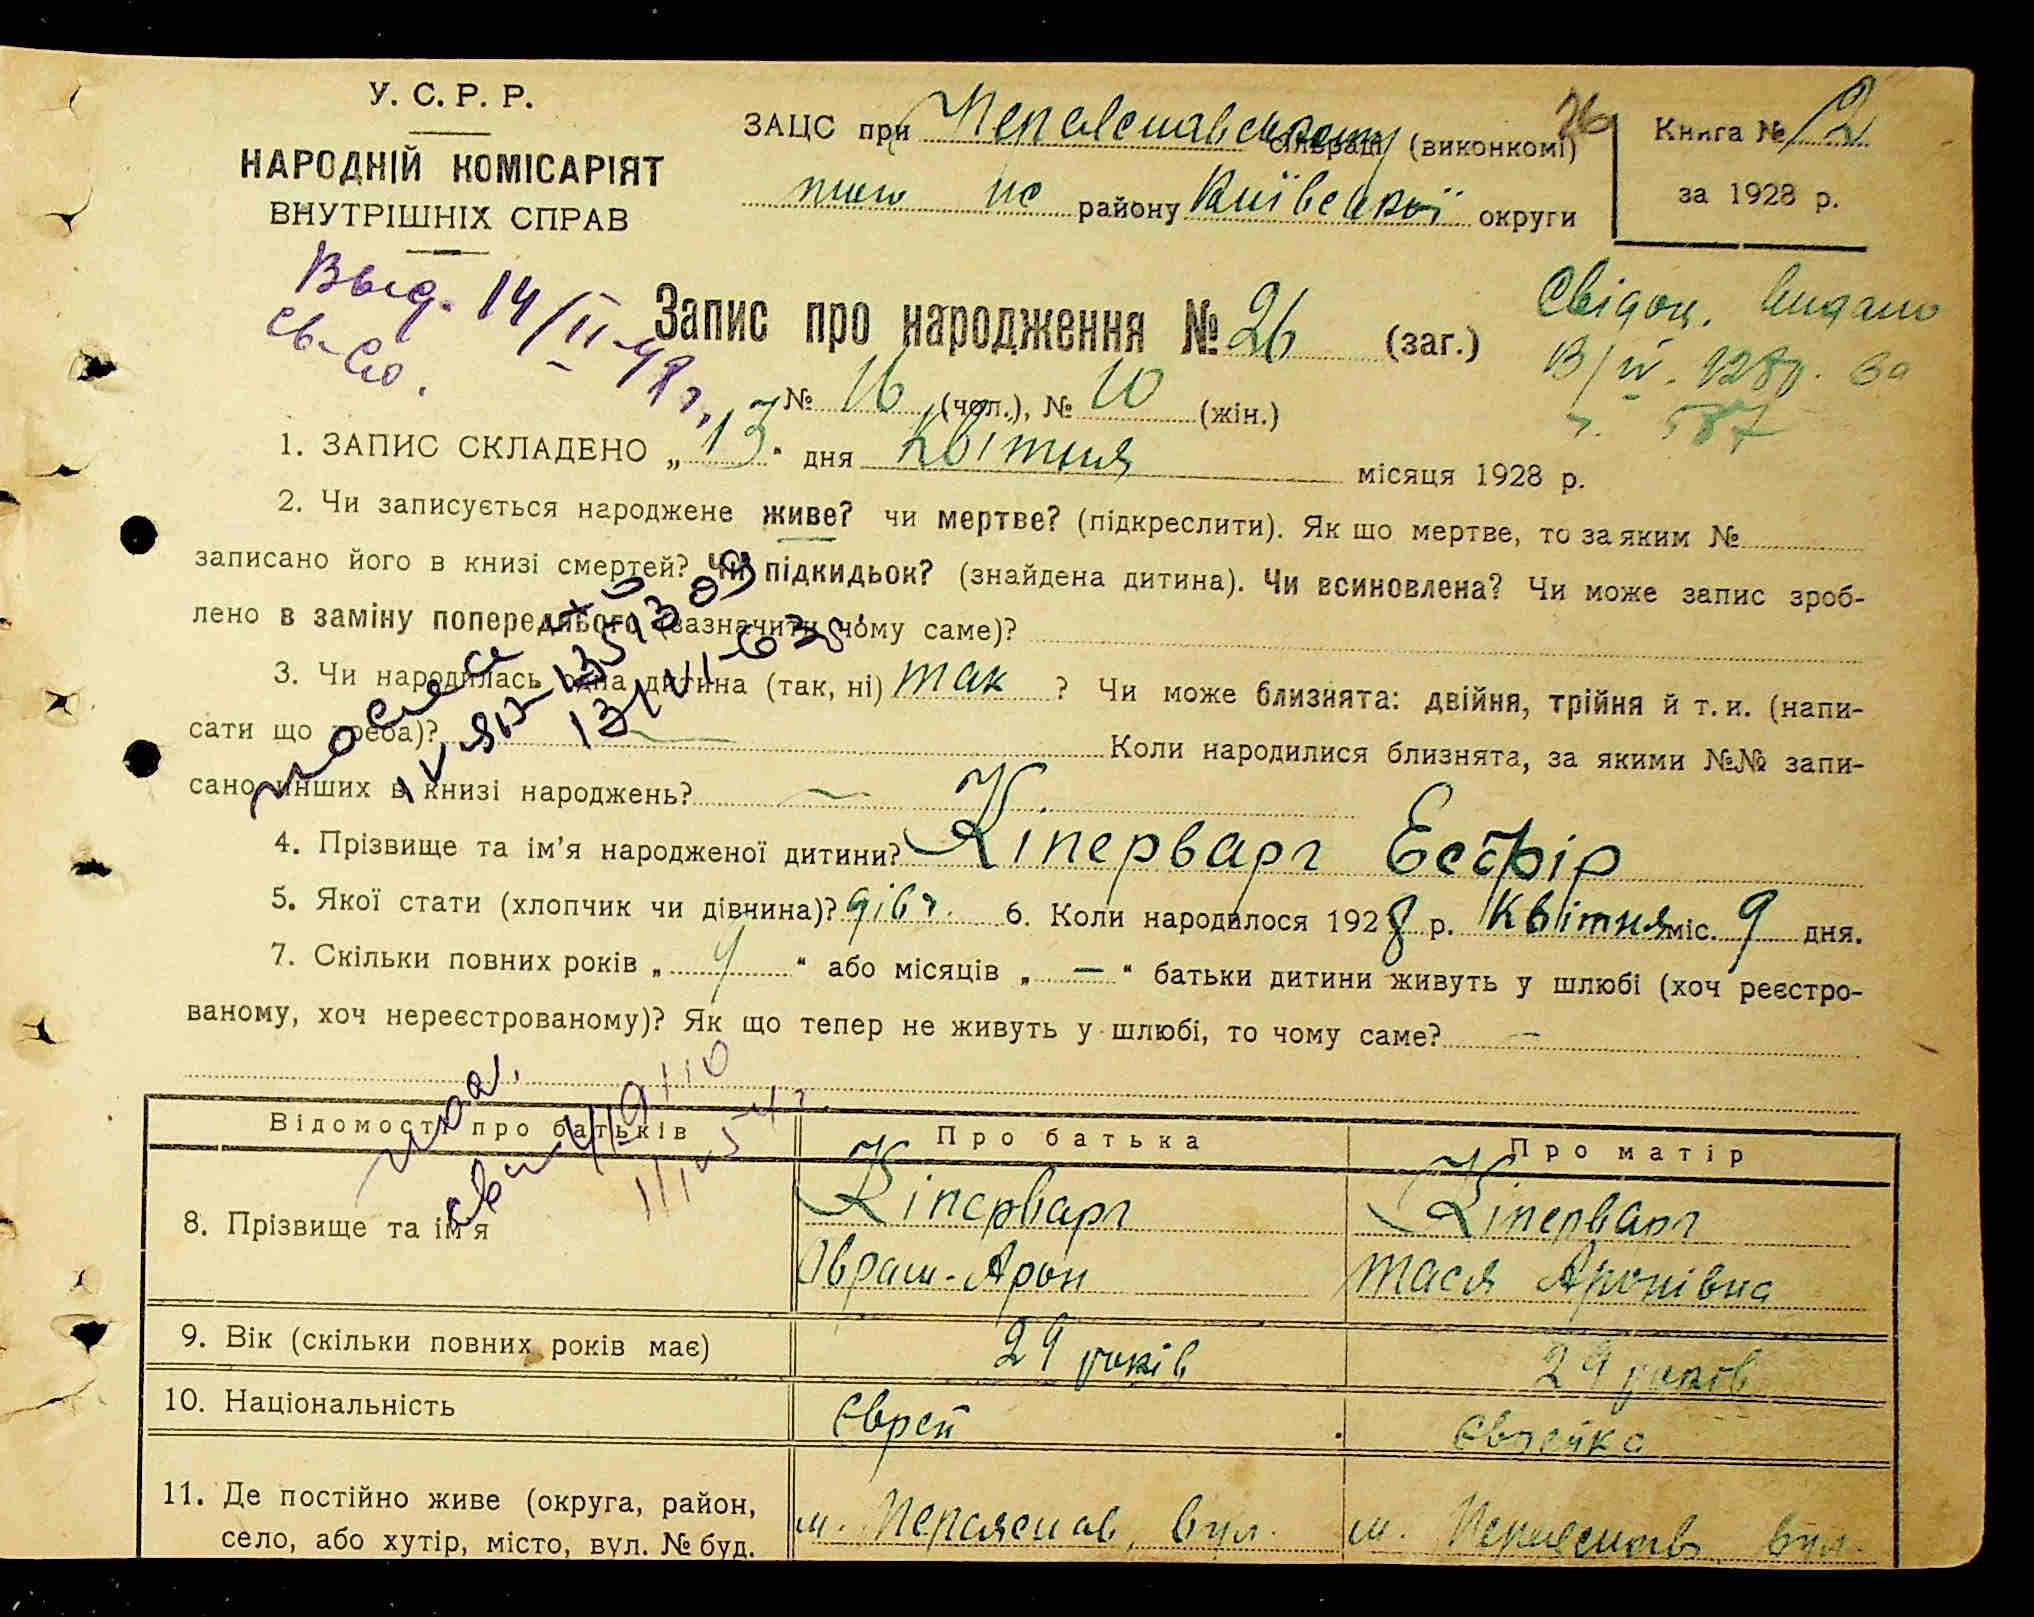 У. С. Р. Р.
НАРОДНІЙ КОМІСАРІЯТ
ВНУТРІШНІХ СПРАВ
ЗАЦС при Переяславському сільраді (виконкомі)
26
того ж району Київської округи
Книга № 2
за 1928 р.
Выд. 14/II-48 г.
св-во.
Запис про народження № 26 (заг.)
Свідоц. видано
13/IV. 928р. за
ч. 587
№ 16 (чол.), № 10 (жін.)
1. ЗАПИС СКЛАДЕНО „ 13 “ дня Квітня місяця 1928 р.
2. Чи записується народжене живе? чи мертве? (підкреслити). Як що мертве, то за яким №
записано його в книзі смертей? Чи підкидьок? (знайдена дитина). Чи всиновлена? Чи може запис зроб-
лено в заміну попереднього (зазначити чому саме)?
3. Чи народилась одна дитина (так, ні) так ? Чи може близнята: двійня, трійня й т. и. (напи-
сати що треба)? Коли народилися близнята, за якими №№ запи-
сано инших в книзі народжень? —
4. Прізвище та ім’я народженої дитини? Кіперварг Естфір
5. Якої стати (хлопчик чи дівчина)? дівч. 6. Коли народилося 1928 р. Квітня міс. 9 дня.
7. Скільки повних років „ 9 “ або місяців „ — “ батьки дитини живуть у шлюбі (хоч реєстро-
ваному, хоч нереєстрованому)? Як що тепер не живуть у шлюбі, то чому саме? —
Відомості про батьків
Про батька
Про матір
8. Прізвище та ім’я
Кіперварг
Овраш-Арон
Кіперварг
Тася Аронівна
9. Вік (скільки повних років має)
29 років
29 років
10. Національність
Єврей
Єврейка
11. Де постійно живе (округа, район,
село, або хутір, місто, вул. № буд.
м. Переяслав, вул.
м. Переяслав, вул.